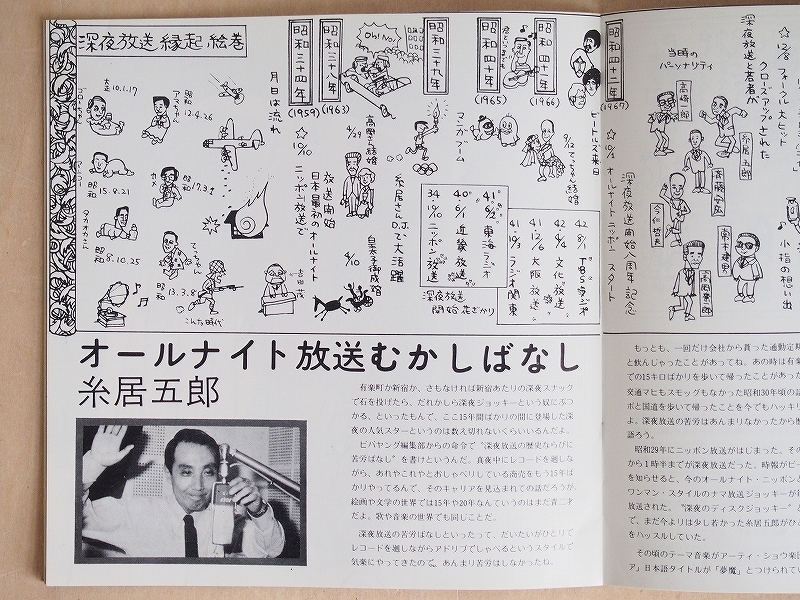 深夜放送縁起絵巻
大正10.1.17
ゴロちゃん
昭和12.4.26
アマちゃん
昭和15.9.21
カメ
昭和17.3.9
タカオカさん
昭和8.10.25
てっちゃん
13.3.8
こんな時代
月日は流れ
昭和三十四年
(1959)
☆10/10 ニッポン放送で
日本最初のオールナイト
放送開始
吉田茂
昭和三十八年
(1963)
Oh! No!
4/10
皇太子御成婚
昭和三十九年
糸居さんD.J.で大活躍
マンガブーム
昭和四十年
(1965)
昭和四十一年
(1966)
ビートルズ来日
34 10/10 ニッポン放送
40 6/1 近畿放送
41 6/2 東海ラジオ
41 10/3 ラジオ関東
41 12/6 大阪放送
42 4/4 文化放送
42 8/1 TBSラジオ
深夜放送
開始花ざかり
昭和四十二年
(1967)
☆10/1 オールナイトニッポン スタート
深夜放送開始八周年記念
当時の
パーソナリティ
高崎一郎
糸居五郎
斉藤安弘
今仁哲夫
常木建男
高岡寮一郎
☆12/8 フォークル大ヒット
クローズアップされた
深夜放送と若者が
小指の想い出
オールナイト放送むかしばなし
糸居五郎
有楽町か新宿か、さもなければ新宿あたりの深夜スナック
で石を投げたら、だれかしら深夜ジョッキーという奴にぶつ
かる、といったもんで、ここ15年間ばかりの間に登場した深
夜の人気スターというのは数え切れないくらいいるんだよ。
ビバヤング編集部からの命令で“深夜放送の歴史ならびに
苦労ばなし”を書けというんだ。真夜中にレコードを廻しな
がら、あれやこれやとおしゃべりしている商売をもう15年ば
かりやってるんで、そのキャリアを見込まれての話だろうが、
絵画や文学の世界では15年や20年なんていうのはまだ青二才
だよ。歌や音楽の世界でも同じことだ。
深夜放送の苦労ばなしといったって、だいたいがひとりで
レコードを廻しながらアドリブでしゃべるというスタイルで
気楽にやってきたので、あんまり苦労はしなかったね。
もっとも、一回だけ会社から貰った通勤定期
と飲んじゃったことがあってね。あの時は有楽
での15キロばかりを歩いて帰ったことがあった
交通マヒもスモッグもなかった昭和30年頃の話
ボと国道を歩いて帰ったことを今でもハッキリ
よ。深夜放送の苦労はあんまりなかったから歴
語ろう。
昭和29年にニッポン放送がはじまった。その
から1時半までが深夜放送だった。時報がピー
を知らせると、今のオールナイト・ニッポンの
ワンマン・スタイルのナマ放送ジョッキーが
放送された。“深夜のディスクジョッキー”と
で、まだ今よりは少し若かった糸居五郎がひと
をハッスルしていた。
その頃のテーマ音楽がアーティ・ショウ楽団
ア」日本語タイトルが「夢魔」とつけられてい